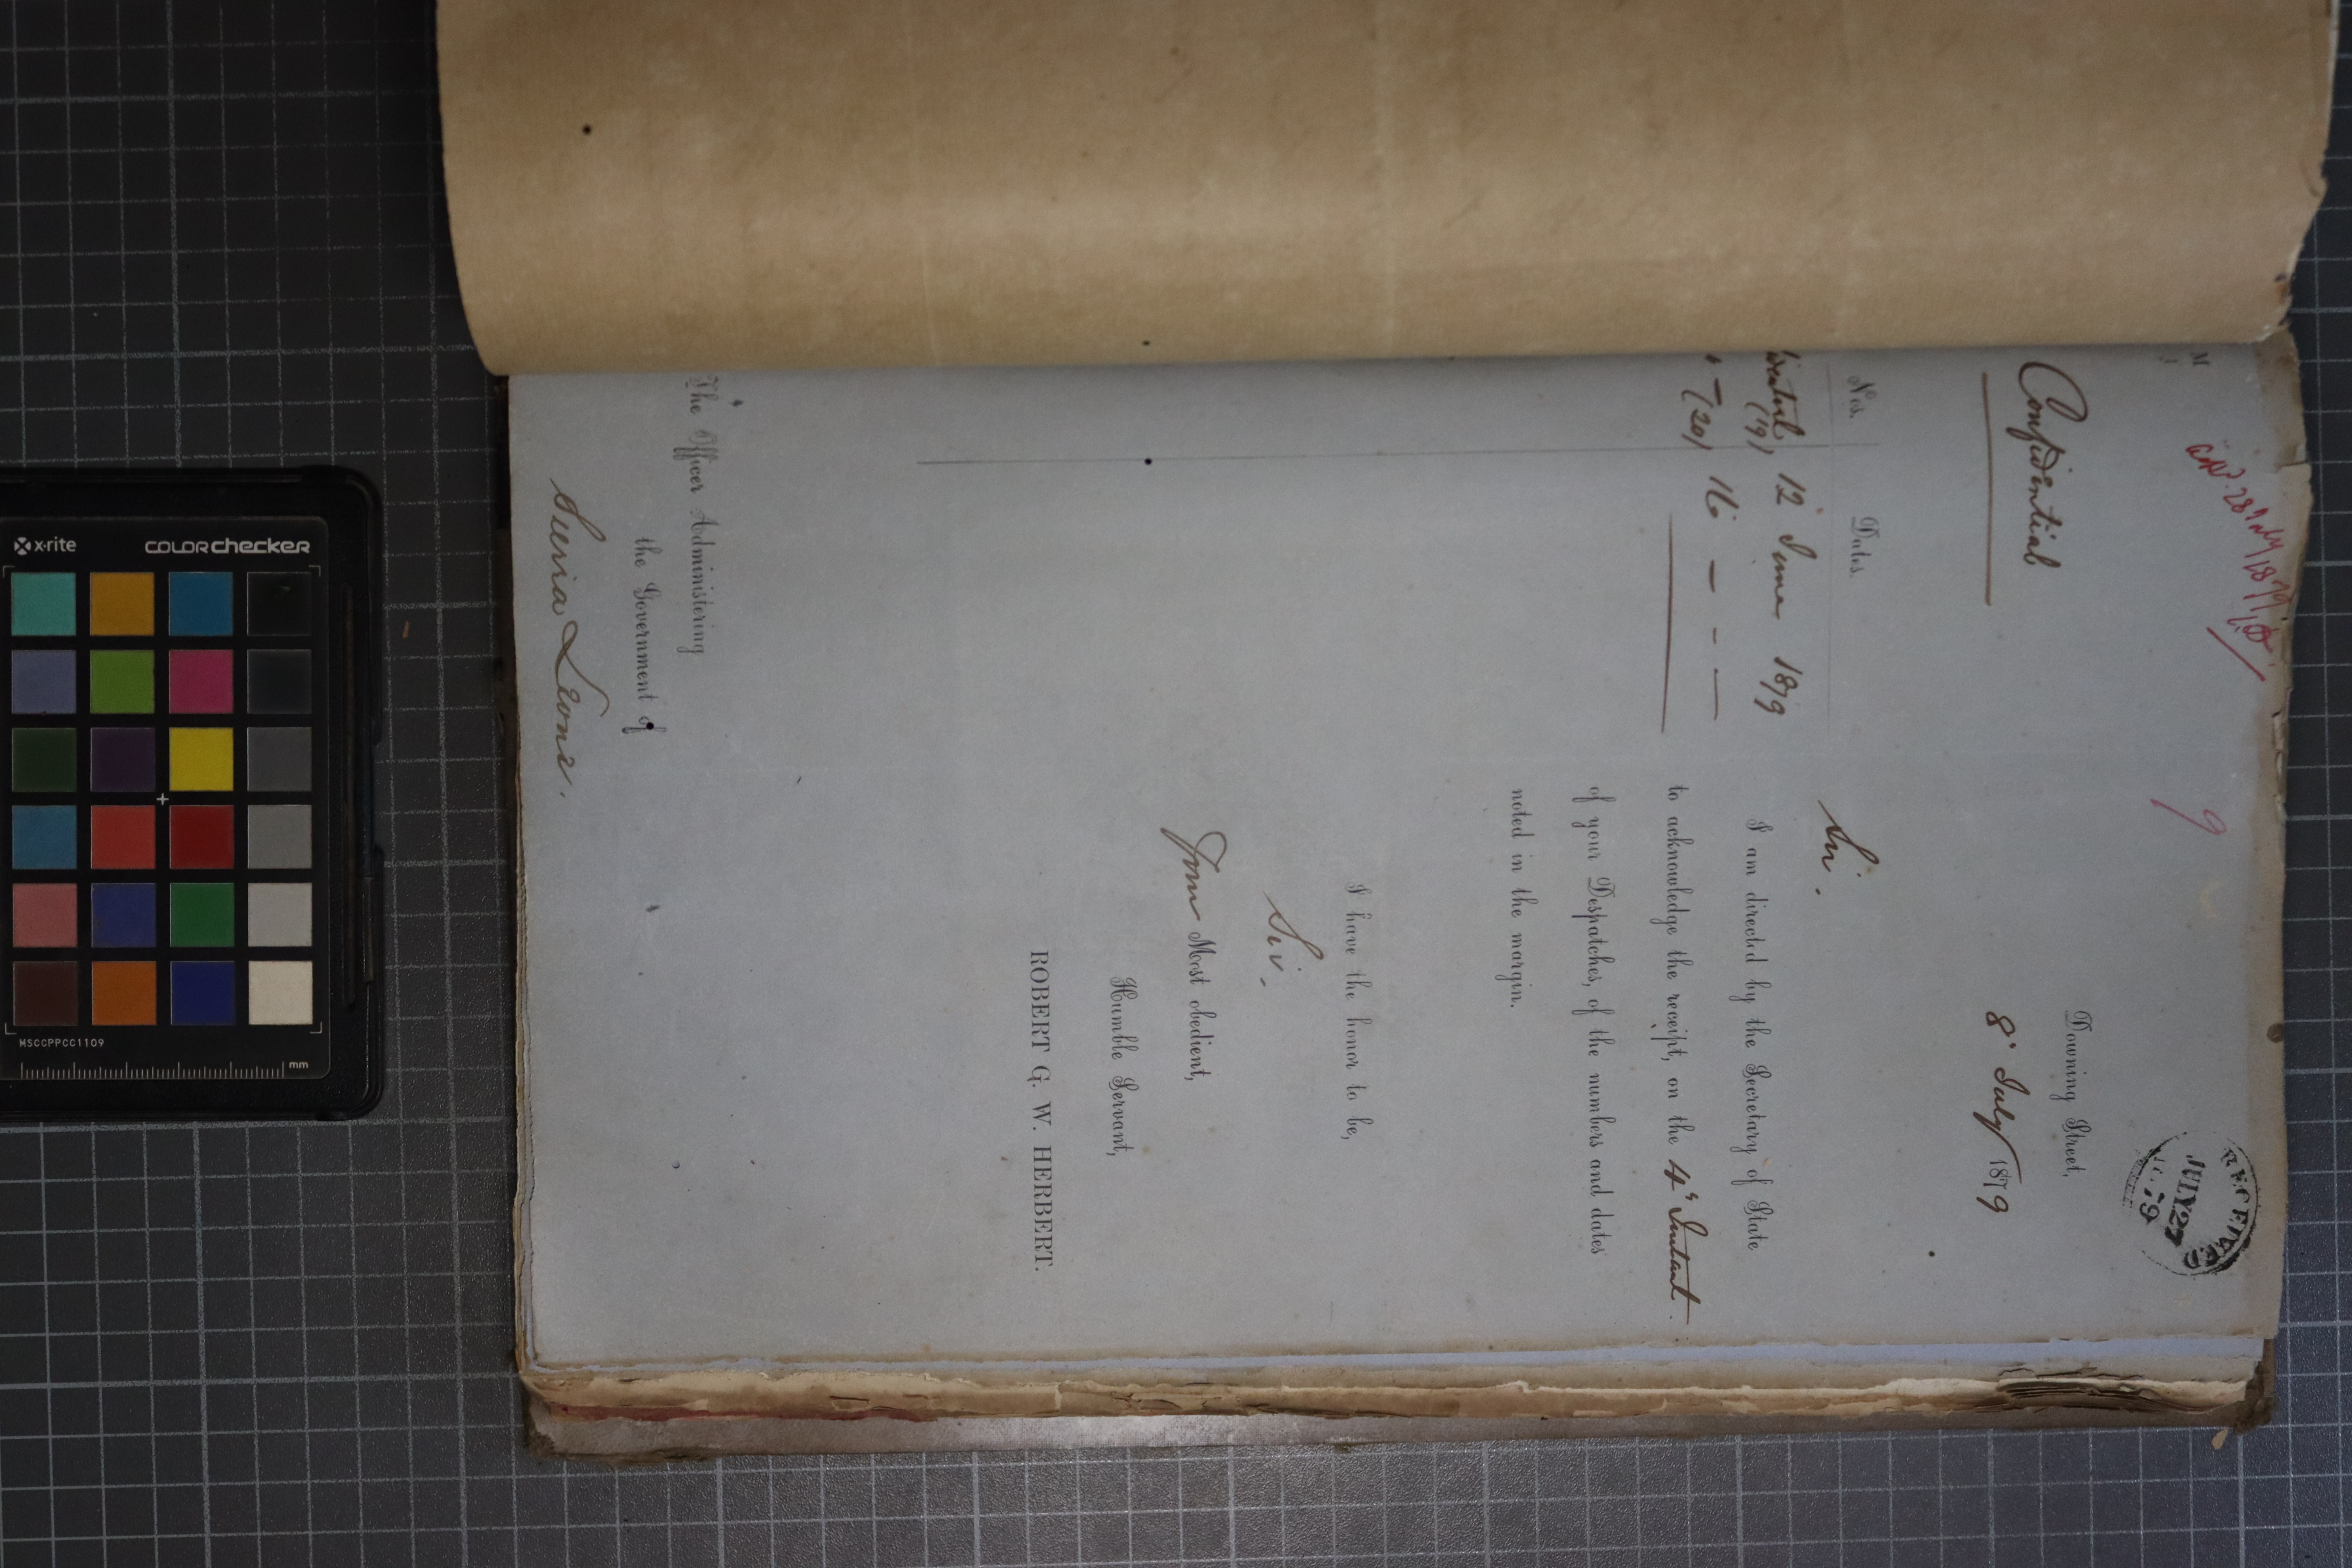 9
RECEIVED
JULY 27
79
Confidential
Downing Street,
8° July 1879
Nos. Dates.
(19) 12 June 1879
" — (20) 16 — - —
Sir.
I am directed by the Secretary of State
to acknowledge the receipt, on the 4th Instant
of your Despatches, of the numbers and dates
noted in the margin.
I have the honor to be,
Sir.
Your Most obedient,
Humble Servant,
ROBERT G. W. HERBERT.
The Officer Administering
the Government of
Sierra Leone.
x·rite COLORchecker
MSCCPPCC1109
mm